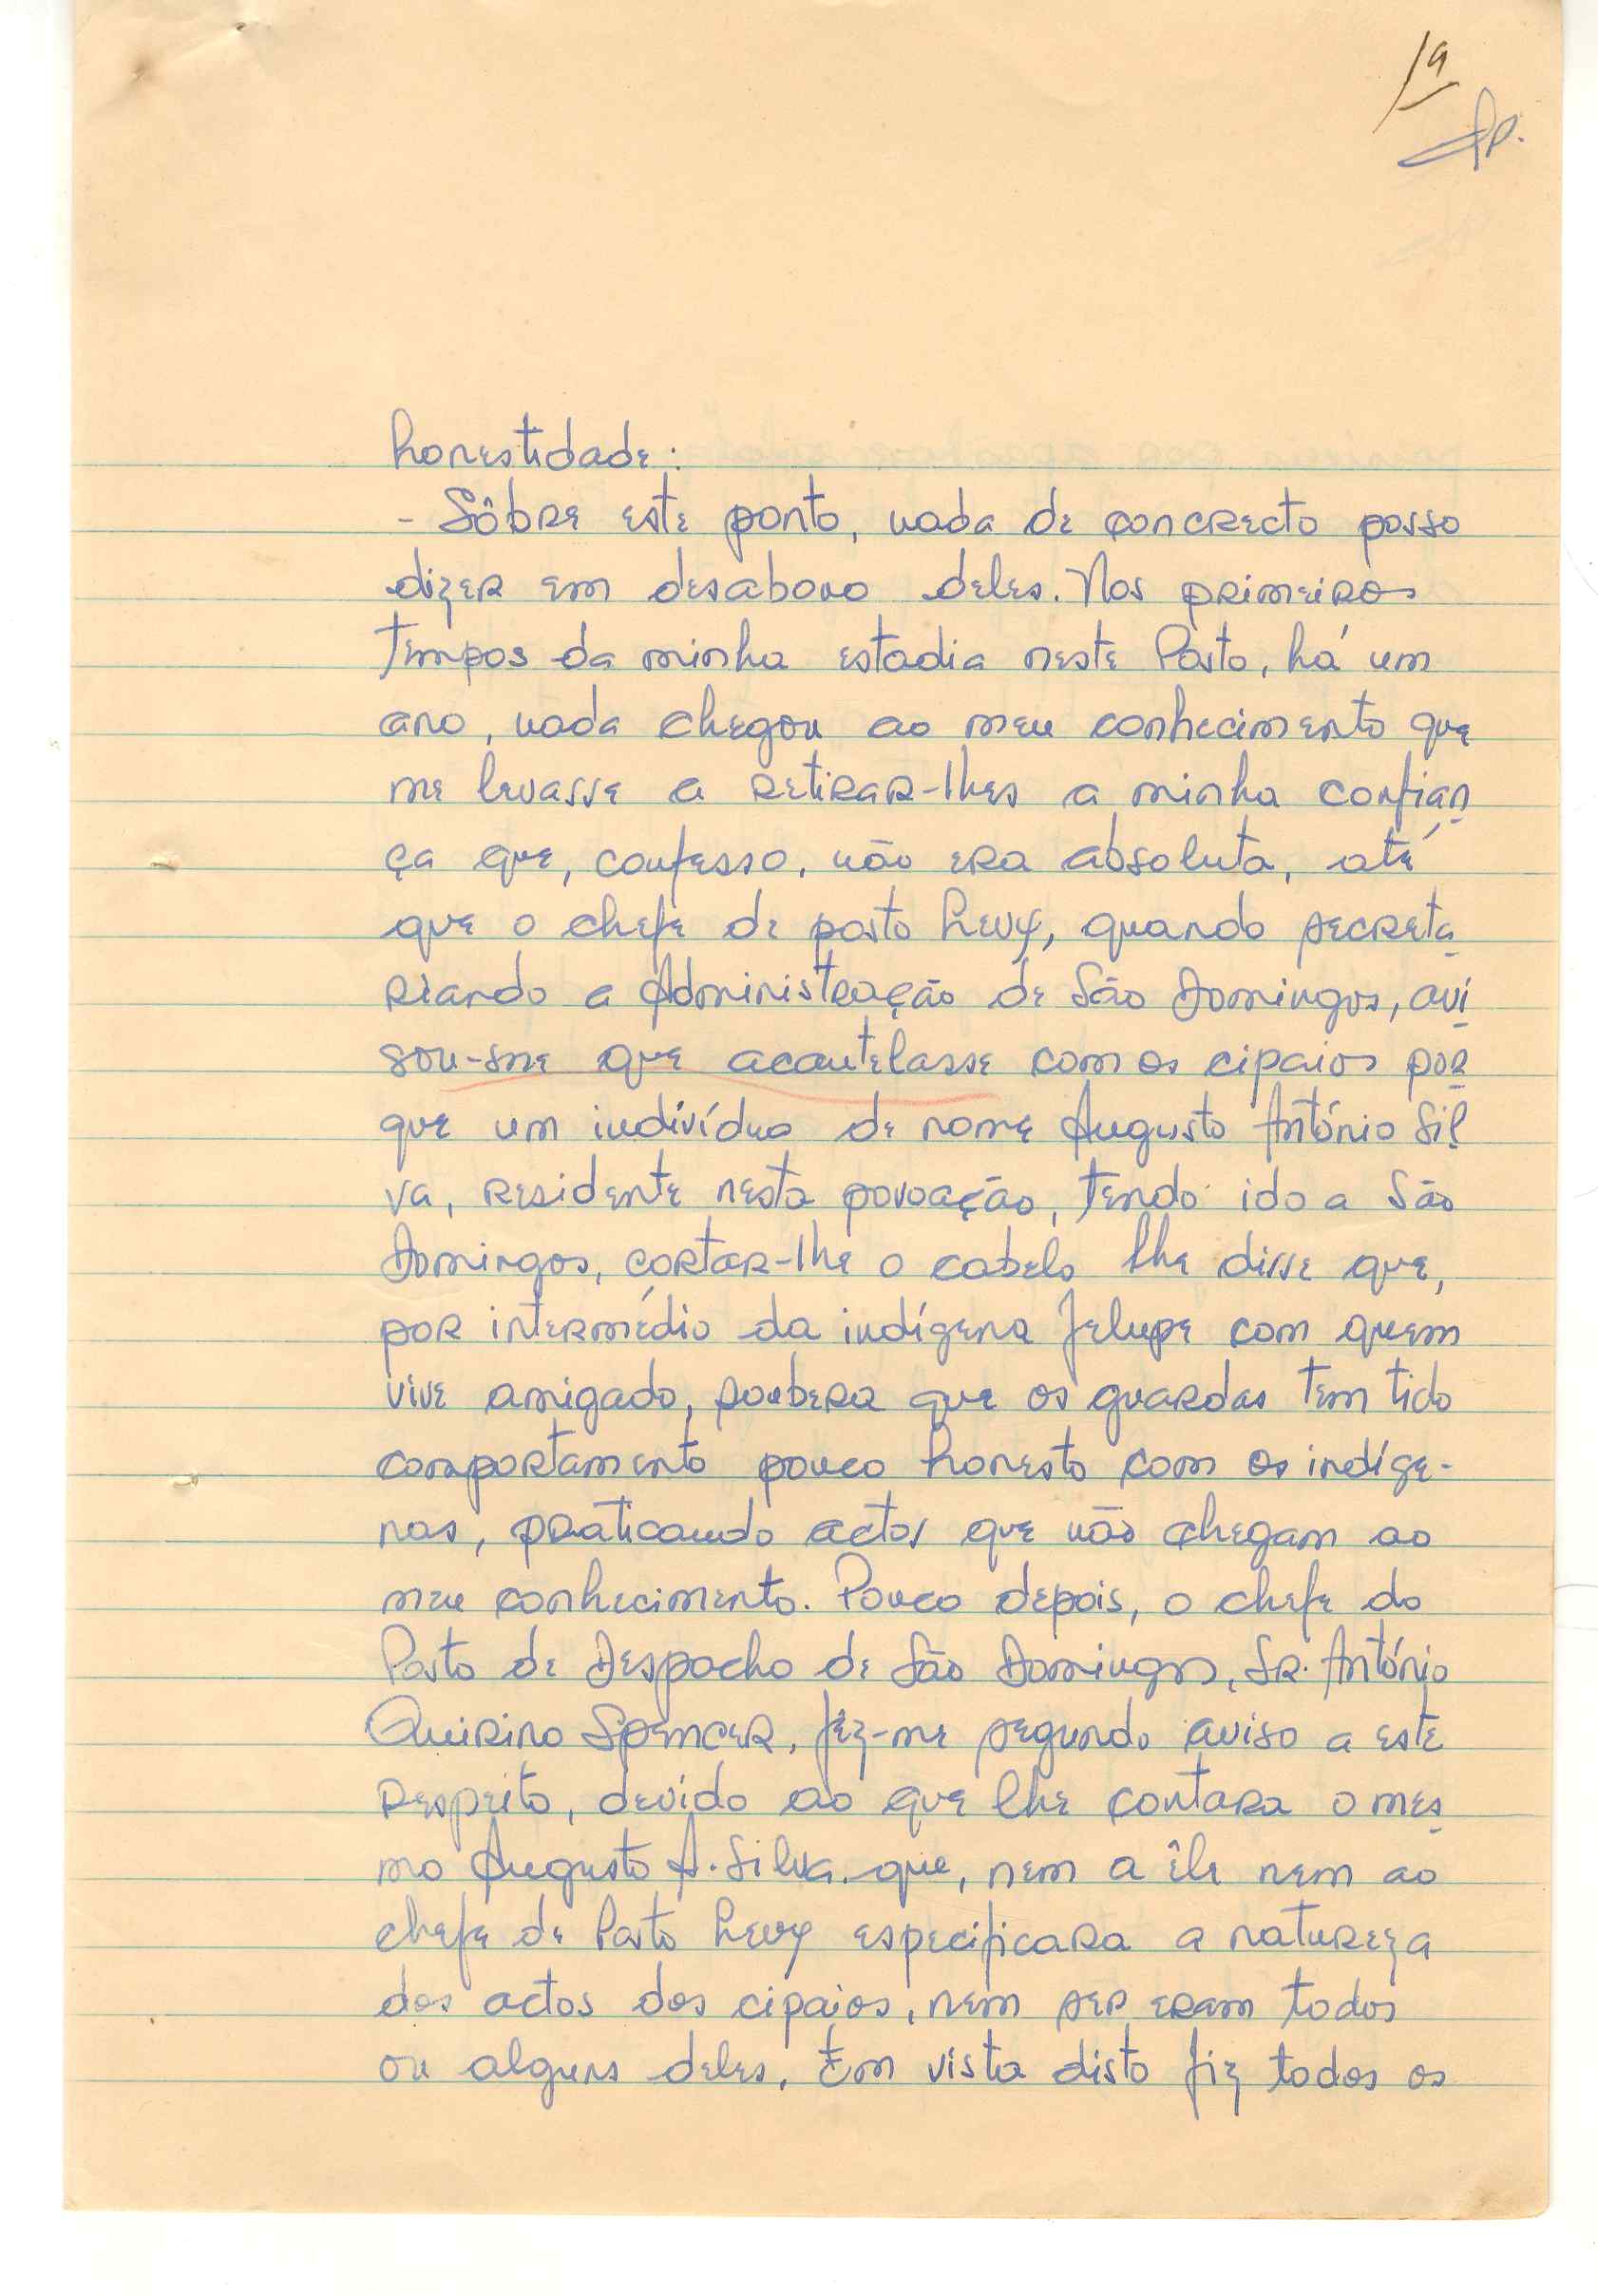 honestidade:
- Sôbre este ponto, nada de concrecto posso
dizer em desabono deles. Nos primeiros
tempos da minha estadia neste Posto, há um
ano, nada chegou ao meu conhecimento que
me levasse a retirar-lhes a minha confian
ça que, confesso, não era absoluta, até
que o chefe de posto Levy, quando secreta
riando a Administração de São Domingos, avi
sou-me que acautelasse com os cipaios por
que um indivíduo de nome Augusto António Sil
va, residente nesta povoação, tendo ido a São
Domingos, cortar-lhe o cabelo lhe disse que,
por intermédio da indígena Jelupe com quem
vive amigado, soubera que os guardas tem tido
comportamento pouco honesto com os indíge-
nas, praticando actos que não chegam ao
meu conhecimento. Pouco depois, o chefe do
Posto de Despacho de São Domingos, Sr. António
Quirino Spencer, fêz-me segundo aviso a este
respeito, devido ao que lhe contara o mes
mo Augusto A. Silva que, nem a êle nem ao
chefe de Posto Levy especificara a natureza
dos actos dos cipaios, nem ser eram todos
ou alguns deles. Em vista disto fiz todos os